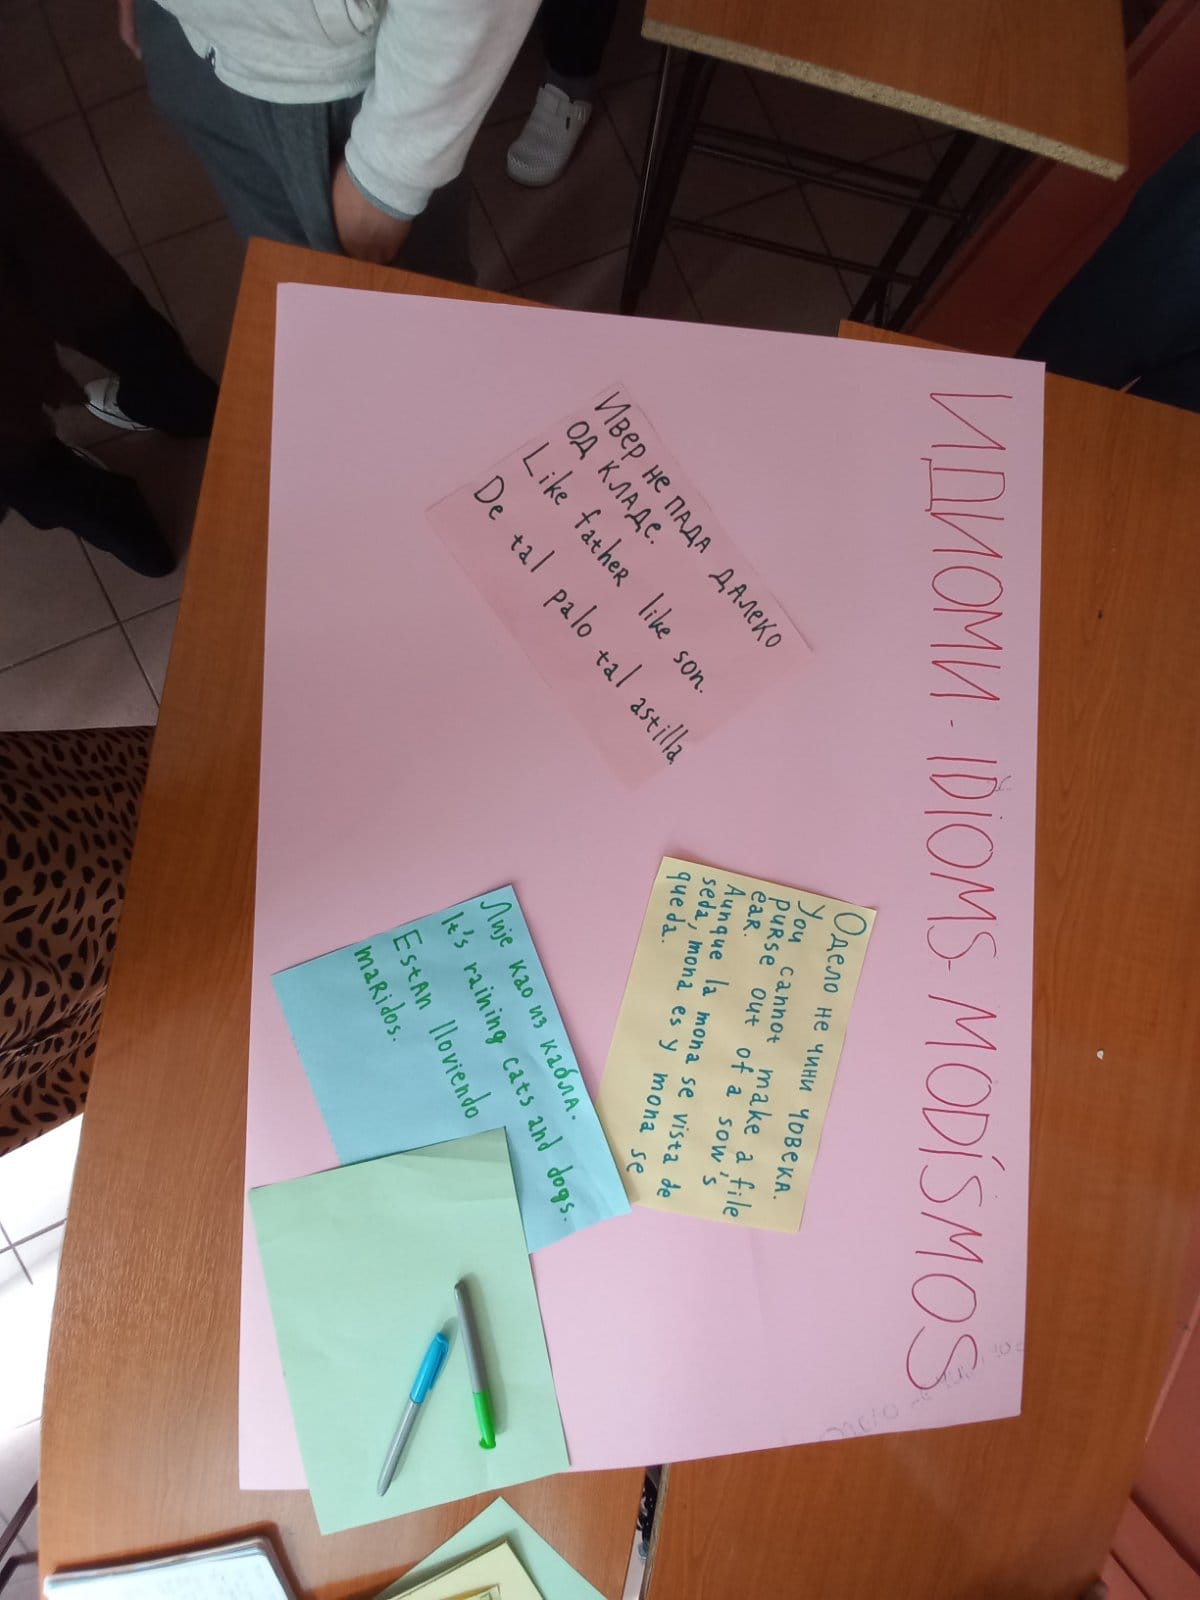 ИДИОМИ - IDIOMS - MODÍSMOS
Ивер не пада далеко
од кладе.
Like father like son.
De tal palo tal astilla
Одело не чини човека.
You cannot make a file
purse out of a sow's
ear.
Aunque la mona se vista de
seda, mona es y mona se
queda.
Лије као из кабла.
It's raining cats and dogs.
Están lloviendo
maridos.